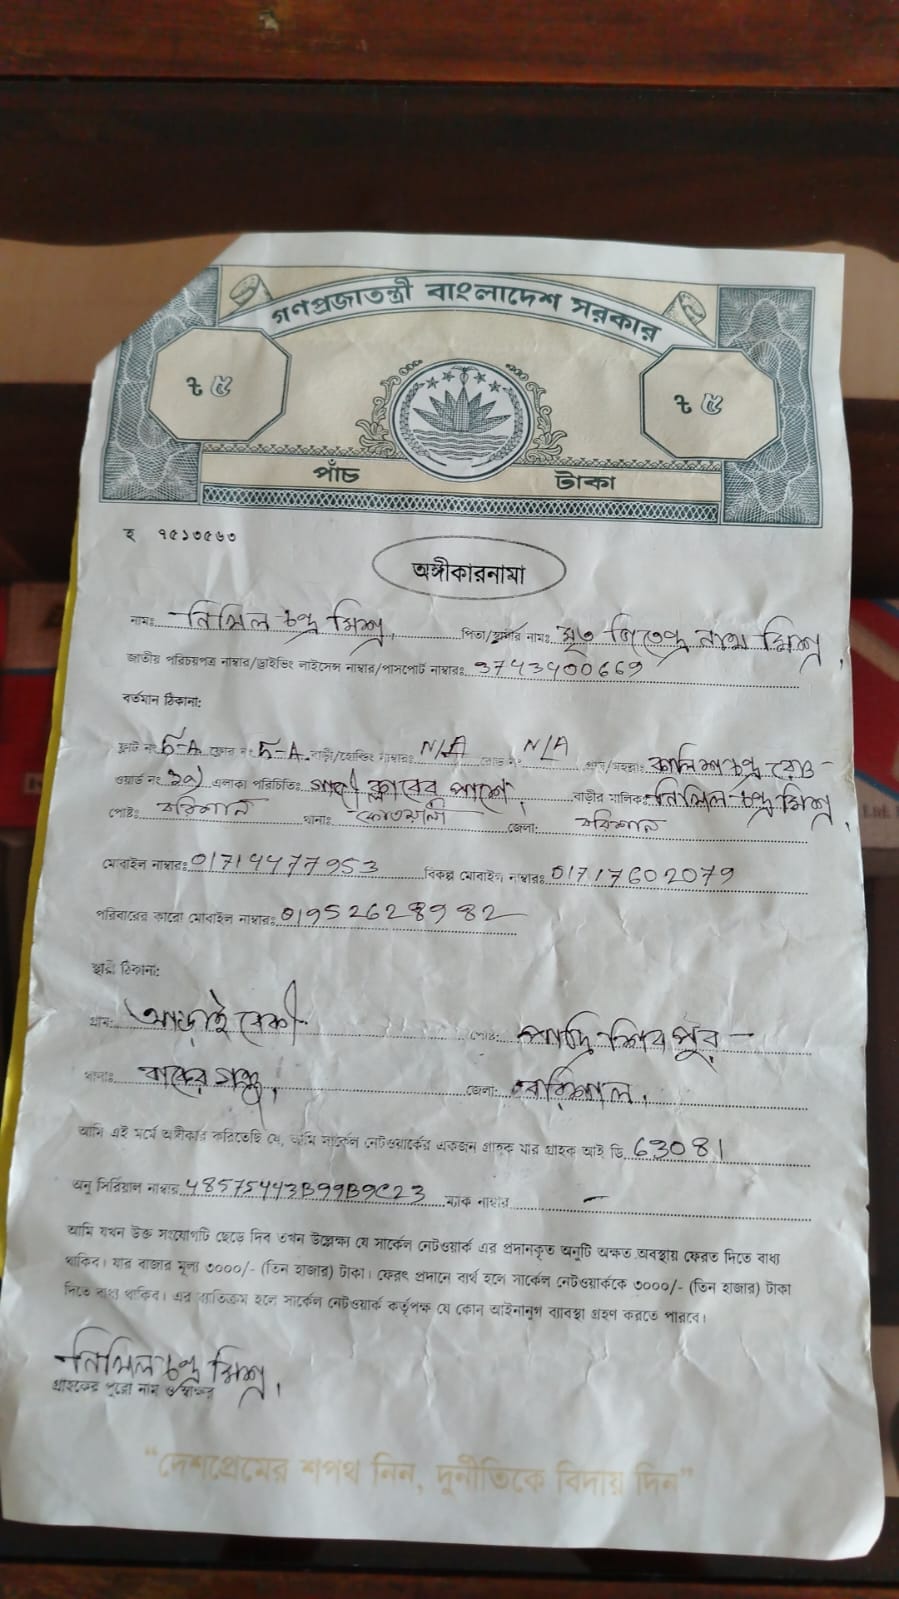 গণপ্রজাতন্ত্রী বাংলাদেশ সরকার
৳ ৫ ৳ ৫
পাঁচ টাকা
হ ৭৫১৩৫৬৩
অঙ্গীকারনামা
নামঃ নিখিল চন্দ্র মিশ্র, পিতা/স্বামীর নামঃ মৃত জিতেন্দ্র নাথ মিশ্র,
জাতীয় পরিচয়পত্র নাম্বার/ড্রাইভিং লাইসেন্স নাম্বার/পাসপোর্ট নাম্বারঃ 3743400669
বর্তমান ঠিকানা:
ফ্লাট নং 5-A ফ্লোর নং 5-A. বাড়ী/হোল্ডিং নাম্বারঃ N/A রোড নং N/A গ্রাম/মহল্লাঃ কালিশ চন্দ্র রোড
ওয়ার্ড নং ১৯, এলাকা পরিচিতিঃ ক্লাবের পাশে, বাড়ীর মালিকঃ নিখিল চন্দ্র মিশ্র,
পোষ্টঃ বরিশাল থানাঃ কোতয়ালী জেলা: বরিশাল
মোবাইল নাম্বারঃ 01714477953 বিকল্প মোবাইল নাম্বারঃ 01717602079
পরিবারের কারো মোবাইল নাম্বারঃ 01952628982
স্থায়ী ঠিকানা:
গ্রাম: আড়াইবেকী পোষ্ট: পাদ্রি শিবপুর
থানাঃ বাকেরগঞ্জ, জেলা: বরিশাল,
আমি এই মর্মে অঙ্গীকার করিতেছি যে, আমি সার্কেল নেটওয়ার্কের একজন গ্রাহক যার গ্রাহক আই ডি 63081
অনু সিরিয়াল নাম্বার 48575443B99B9C23 ম্যাক নাম্বার –
আমি যখন উক্ত সংযোগটি ছেড়ে দিব তখন উল্লেক্ষ্য যে সার্কেল নেটওয়ার্ক এর প্রদানকৃত অনুটি অক্ষত অবস্থায় ফেরত দিতে বাধ্য
থাকিব। যার বাজার মূল্য ৩০০০/- (তিন হাজার) টাকা। ফেরৎ প্রদানে ব্যর্থ হলে সার্কেল নেটওয়ার্ককে ৩০০০/- (তিন হাজার) টাকা
দিতে বাধ্য থাকিব। এর ব্যতিক্রম হলে সার্কেল নেটওয়ার্ক কর্তৃপক্ষ যে কোন আইনানুগ ব্যাবস্থা গ্রহণ করতে পারবে।
নিখিল চন্দ্র মিশ্র,
গ্রাহকের পুরো নাম ও স্বাক্ষর
“দেশপ্রেমের শপথ নিন, দুর্নীতিকে বিদায় দিন”